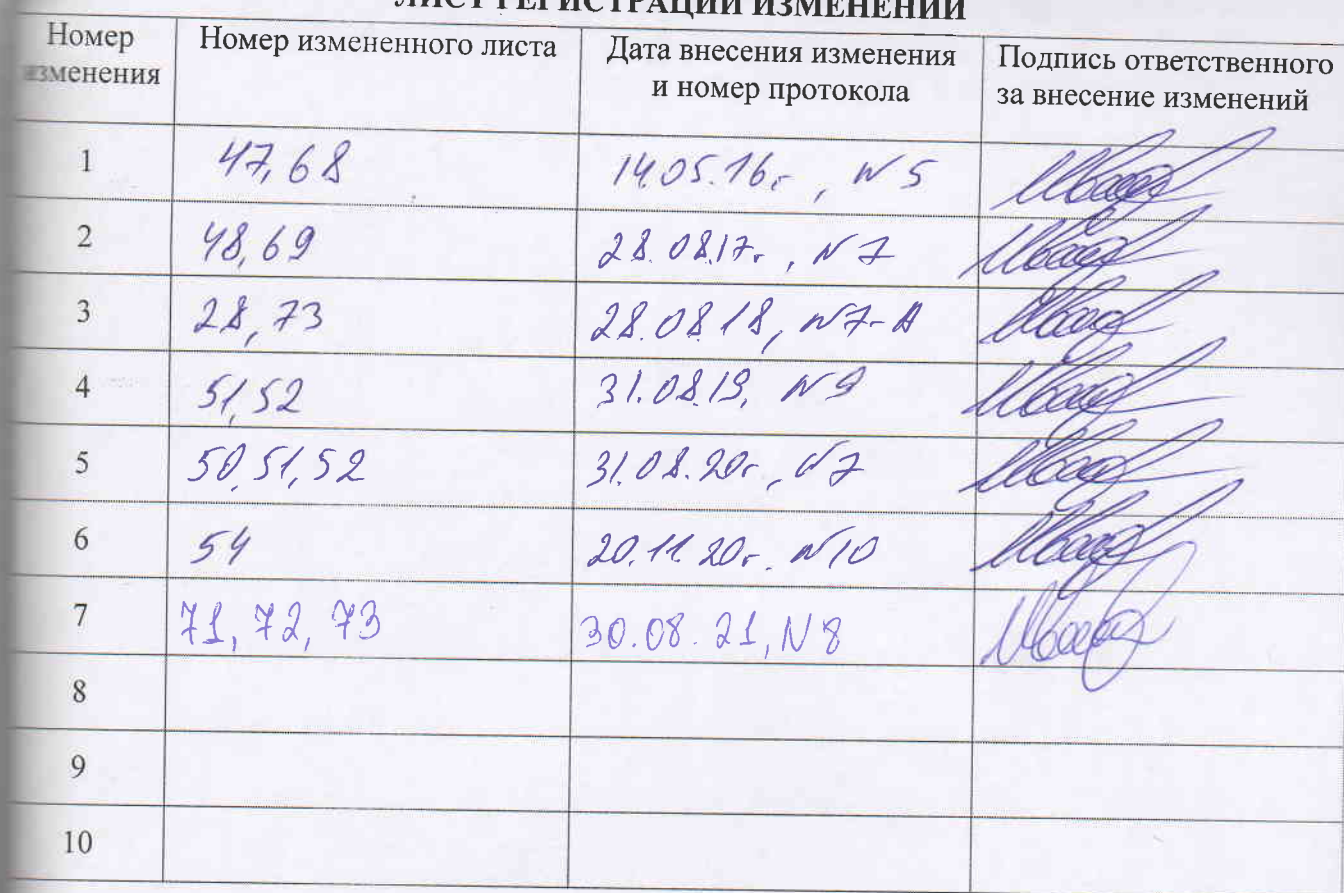 ЛИСТ РЕГИСТРАЦИИ ИЗМЕНЕНИЙ
Номер изменения Номер измененного листа Дата внесения изменения и номер протокола Подпись ответственного за внесение изменений
1 47,68 14.05.16г, N 5
2 48,69 28.08.17г, N 7
3 28,73 28.08.18, N7-А
4 51,52 31.08.19, N 9
5 50,51,52 31.08.20г, N7
6 54 20.11.20г. N10
7 71, 72, 73 30.08.21, N 8
8
9
10